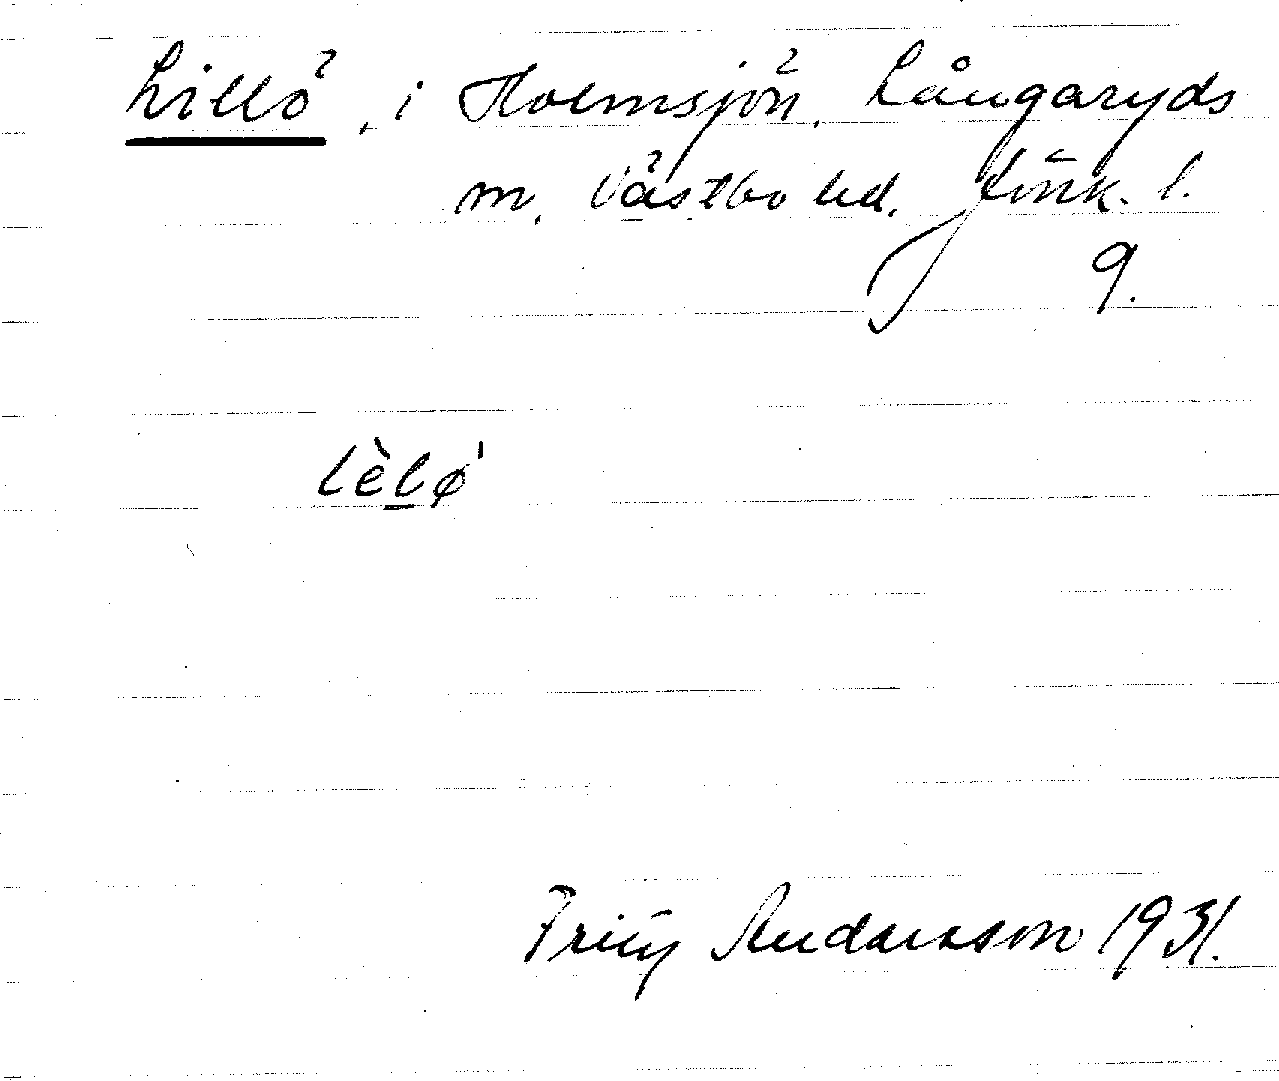 Lillö, i Holmsjön, Långaryds
m. Västbo hd. Jönk. l.
9.
lèlø'
Fritz Andersson 1931.